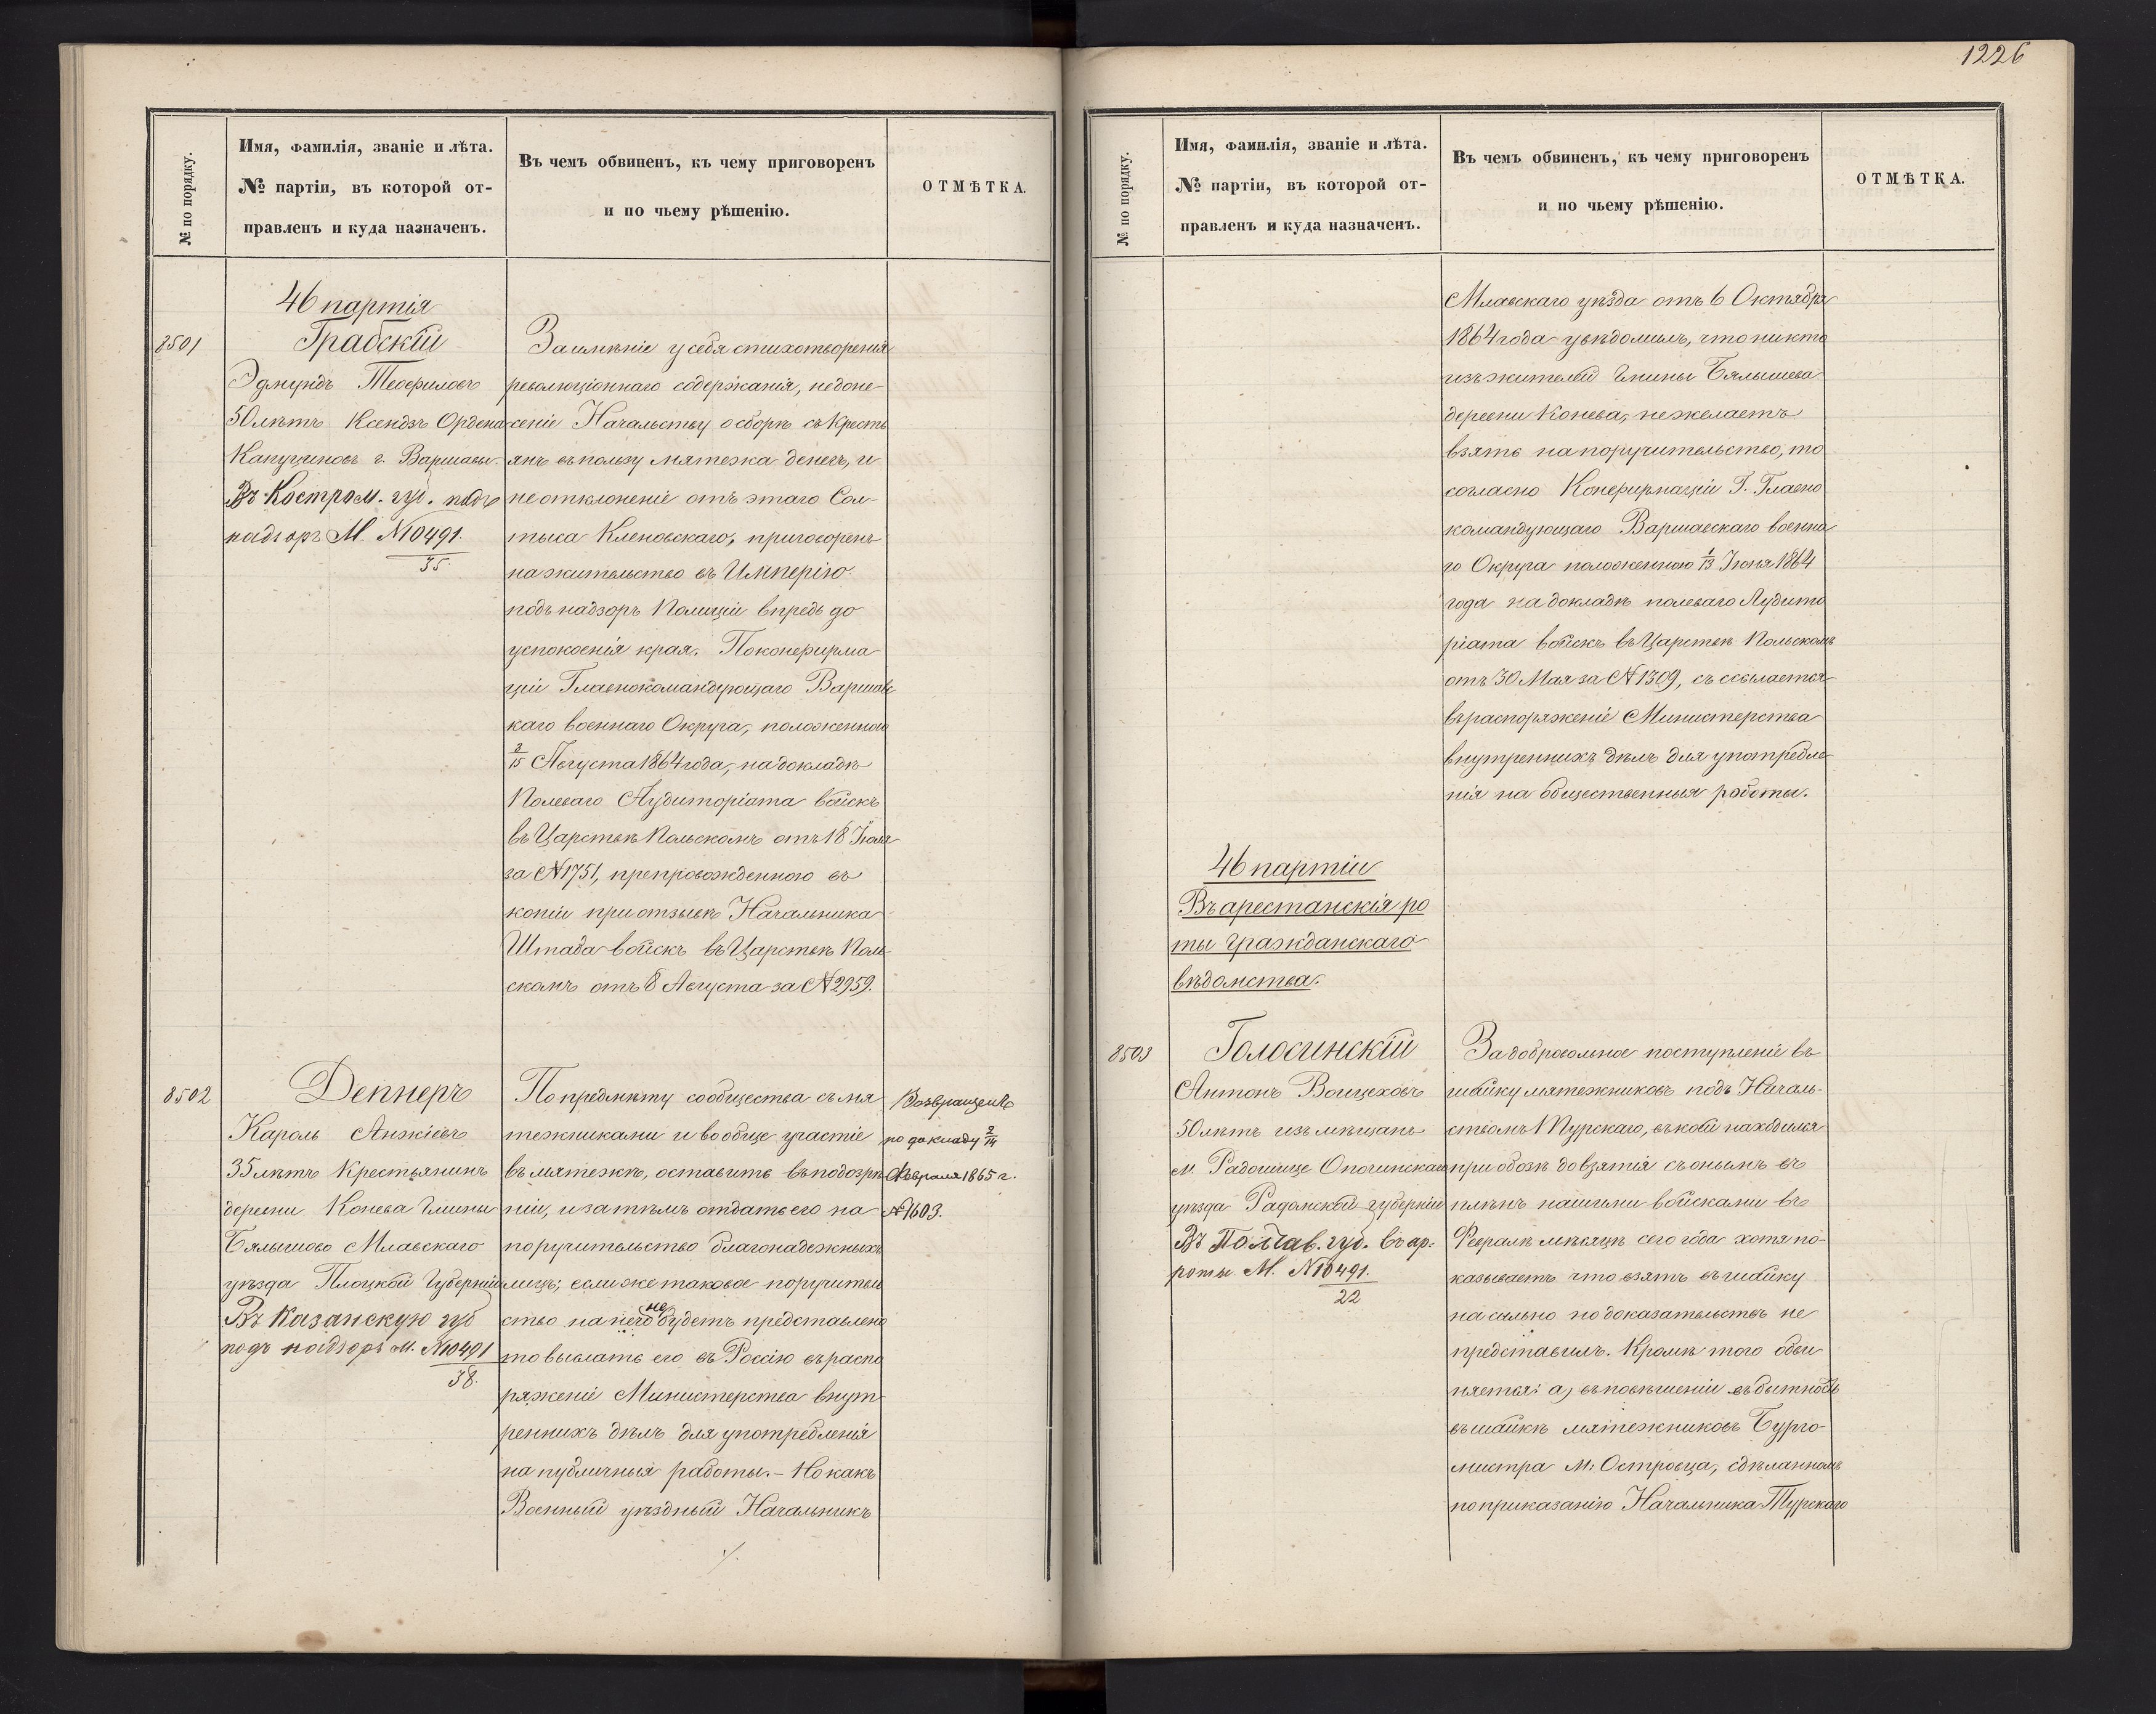 1226
№ по порядку.
Имя, фамилія, званіе и лѣта.
№ партіи, въ которой от-
правленъ и куда назначенъ.
Въ чемъ обвиненъ, къ чему приговоренъ
и по чьему рѣшенію.
ОТМѢТКА.
46 партія
8501
Грабскій
Эдмундъ Теофиловъ
50 лѣтъ Ксендзъ Ордена
Капуциновъ г. Варшавы.
Въ Костром. губ. подъ
надзоръ М. № 10491.
35.
За имѣніе у себя стихотворенія
революціоннаго содержанія, недоне-
сеніе Начальству о сборѣ съ Кресть
янъ въ пользу мятежа денегъ, и
не отклоненіе отъ этаго Сол-
тыса Кленовскаго, приговоренъ
на жительство въ Имперію
подъ надзоръ Полиціи впредь до
успокоенія края. По конфирма
ціи Главнокомандующаго Варшавс
каго военнаго Округа, положенной
3/15 Августа 1864 года, на докладѣ
Полеваго Аудиторіата войскъ
въ Царствѣ Польскомъ отъ 18 Іюля
за № 1751, препровожденного въ
копіи при отзывѣ Начальника
Штаба войскъ въ Царствѣ Поль-
скомъ отъ 8 Августа за № 2959.
8502
Деннеръ
Кароль Анжіевъ
35 лѣтъ Крестьянинъ
деревни Конева Гмины
Бялышово Млавскаго
уѣзда Плоцкой Губерніи
Въ Казанскую губ
подъ надзоръ М. № 10491
38.
По предмѣту сообщества съ мя
тежниками и вообще участіе
въ мятежѣ, оставить въ подозрѣ
ніи, и затѣмъ отдать его на
поручительство благонадежныхъ
лицъ; если же таковое поручитель
ство на него не будетъ представлено
то выслать его въ Россію въ распо
ряженіе Министерства внут-
реннихъ дѣлъ для употребленія
на публичныя работы. – Но какъ
Военный уѣздный Начальникъ
./.
Возвращенъ
по докладу 2/14
Февраля 1865 г.
№ 1603.
№ по порядку.
Имя, фамилія, званіе и лѣта.
№ партіи, въ которой от-
правленъ и куда назначенъ.
Въ чемъ обвиненъ, къ чему приговоренъ
и по чьему рѣшенію.
ОТМѢТКА.
Млавскаго уѣзда отъ 6 Октября
1864 года увѣдомилъ, что никто
изъ жителей Гмины Бялышева
деревни Конева, не желаетъ
взять на поручительство, то
согласно Конфирмаціи Г. Главно
командующаго Варшавскаго военна
го Округа положенной 1/13 Іюня 1864
года на докладѣ полеваго Аудито
ріата войскъ въ Царствѣ Польскомъ
отъ 30 Мая за № 1309, съ ссылается
въ распоряженіе Министерства
внутреннихъ дѣлъ для употребле-
нія на общественныя работы.
46 партіи
Въ арестанскія ро
ты Гражданскаго
вѣдомства.
8503
Голосинскій
Антонъ Войцеховъ
50 лѣтъ изъ мѣщанъ
м. Радошице Опочинскаго
уѣзда Радомской губерніи
Въ Полтав. губ. въ ар.
роты М. № 10491.
22
За добровольное поступленіе въ
шайку мятежниковъ подъ Началь-
ствомъ Турскаго, въ коей находился
при обозѣ до взятія съ онымъ въ
плѣнъ нашими войсками въ
Февралѣ мѣсяцѣ сего года хотя по-
казываетъ что взятъ въ шайку
насильно но доказательствъ не
представилъ. Кромѣ того обви
няется: а) въ повѣшеніи въ бытность
въ шайкѣ мятежниковъ Бурго-
мистра М. Островца, сдѣланномъ
по приказанію Начальника Турскаго